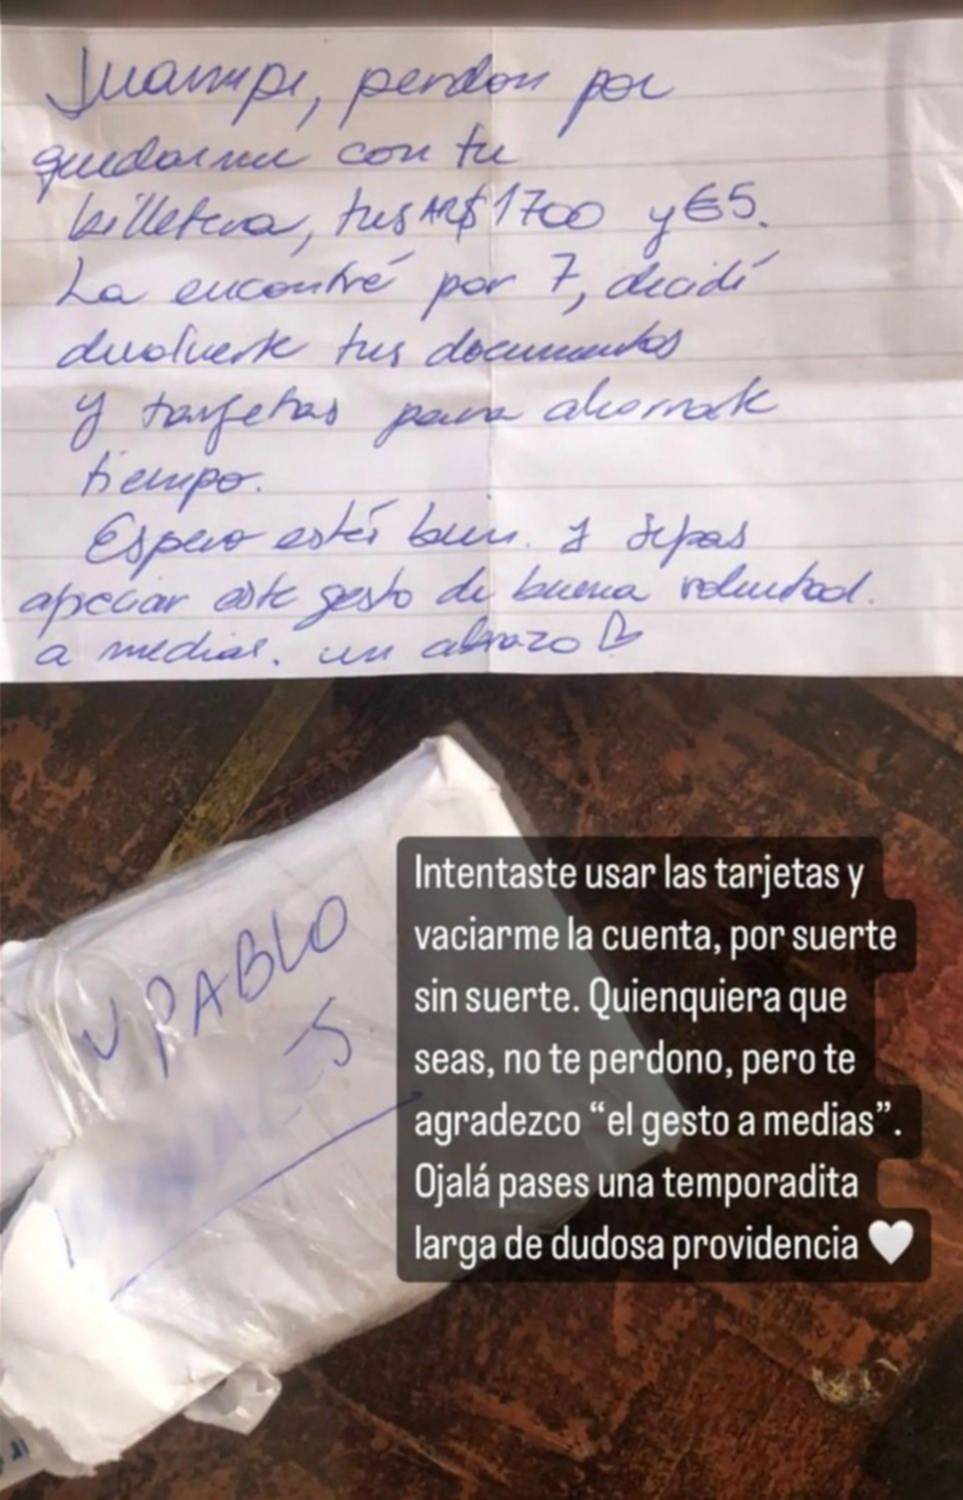 Juampi, perdón por
quedarme con tu
billetera, tus AR$1700 y €5.
La encontré por 7, decidí
devolverte tus documentos
y tarjetas para ahorrarte
tiempo.
Espero estés bien. y sepas
apreciar este gesto de buena voluntad.
a medias. un abrazo
J PABLO
S
Intentaste usar las tarjetas y
vaciarme la cuenta, por suerte
sin suerte. Quienquiera que
seas, no te perdono, pero te
agradezco “el gesto a medias”.
Ojalá pases una temporadita
larga de dudosa providencia 🤍